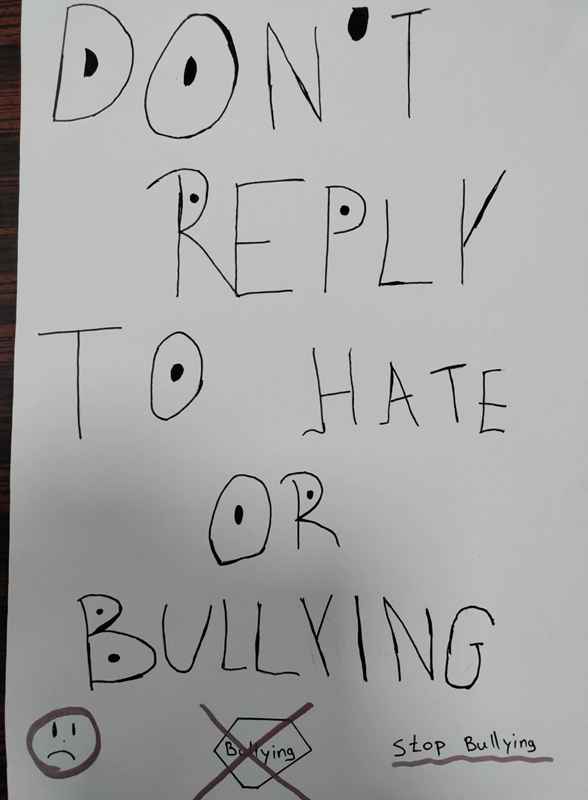 DON'T
REPLY
TO HATE
OR
BULLYING
Bullying
Stop Bullying